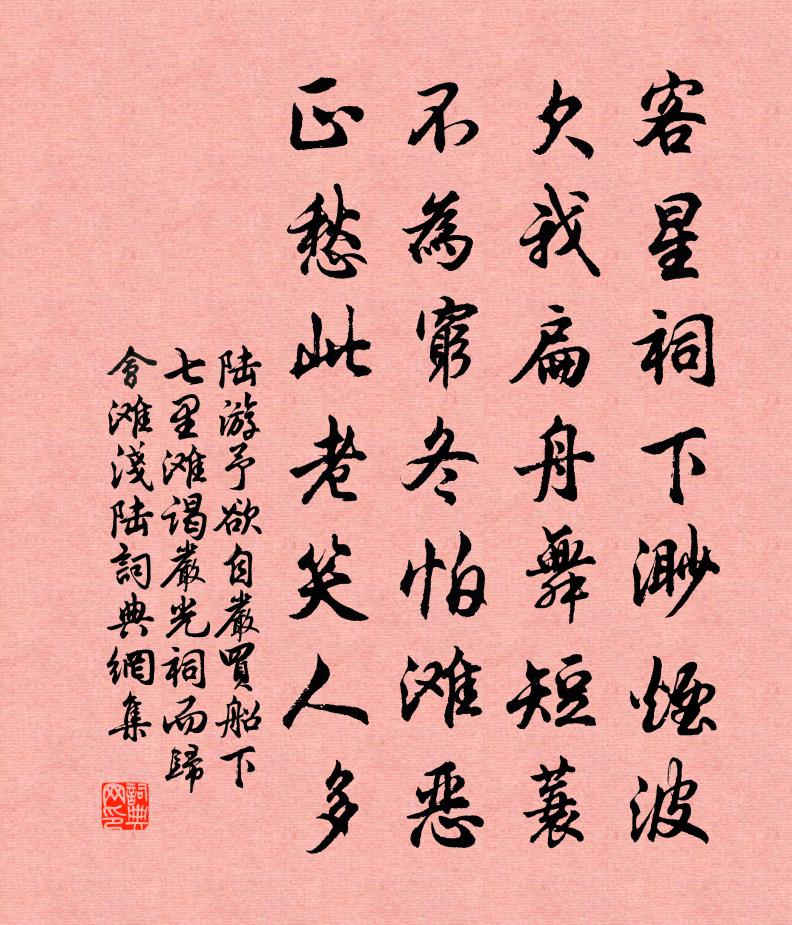 客星祠下渺煙波
欠我扁舟舞短蓑
不為窮冬怕滩恶
正愁此老笑人多
陆游予欲自嚴買船下
七里滩谒嚴光祠而歸
會滩淺陆詞典網集
詞典网印